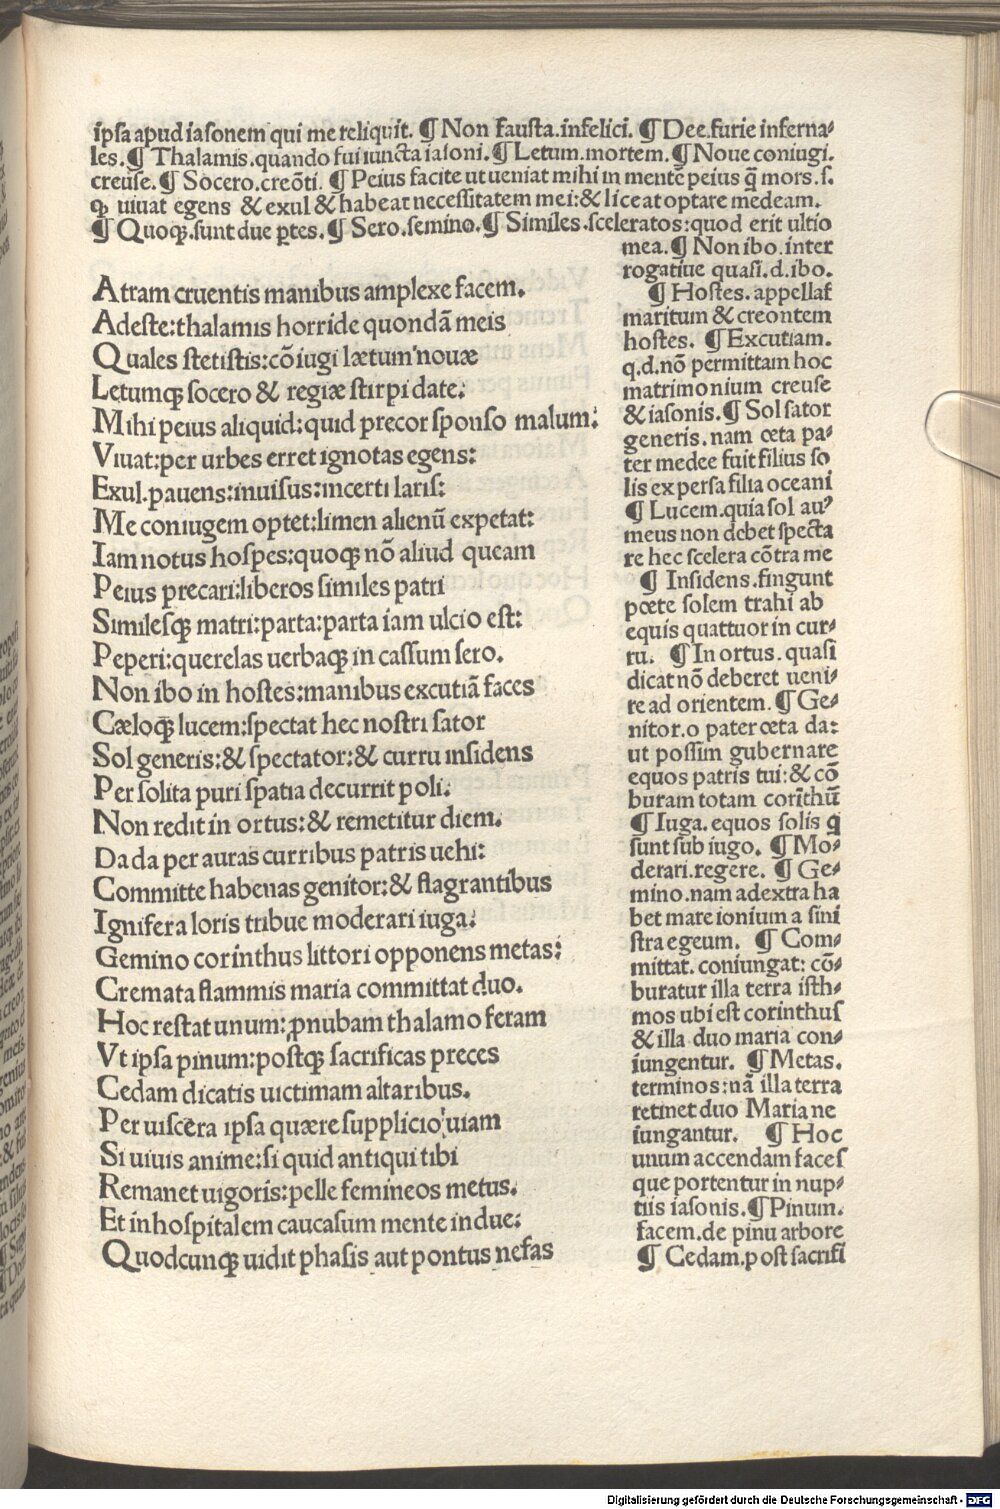 ipſa apud iaſonem qui me reliquit. ¶ Non fauſta.infelici. ¶ Dee.furie inferna⸗
les. ¶ Thalamis.quando fui iuncta iaſoni. ¶ Letum.mortem. ¶ Noue coniugi.
creuſe. ¶ Socero.creōti. ¶ Peius facite ut ueniat mihi in mentē peius q̄ mors.ſ.
ꝙ uiuat egens & exul & habeat neceſſitatem mei:& liceat optare medeam.
¶ Quoqꝫ.ſunt due ꝑtes. ¶ Sero.ſemino. ¶ Similes.ſceleratos:quod erit ultio
mea. ¶ Non ibo.inter
rogatiue quaſi.d.ibo.
¶ Hoſtes.appellat
maritum & creontem
hoſtes. ¶ Excutiam.
q.d.nō permittam hoc
matrimonium creuſe
& iaſonis. ¶ Sol ſator
generis.nam œta pa⸗
ter medee fuit filius ſo
lis ex perſa filia oceani
¶ Lucem.quia ſol auꝰ
meus non debet ſpecta
re hec ſcelera cōtra me
¶ Inſidens.fingunt
poete ſolem trahi ab
equis quattuor in cur⸗
ru. ¶ In ortus.quaſi
dicat nō deberet ueni⸗
re ad orientem. ¶ Ge⸗
nitor.o pater œta da:
ut poſſim gubernare
equos patris tui:& cō
buram totam corīthū
¶ Iuga.equos ſolis q̄
ſunt ſub iugo. ¶ Mo⸗
derari.regere. ¶ Ge⸗
mino.nam ad extra ha
bet mare ionium a ſini
ſtra egeum. ¶ Com⸗
mittat.coniungat: cō⸗
buratur illa terra iſth⸗
mos ubi eſt corinthuſ
& illa duo maria con⸗
iungentur. ¶ Metas.
terminos:nā illa terra
retinet duo Maria ne
iungantur. ¶ Hoc
unum accendam faceſ
que portentur in nup⸗
tiis iaſonis. ¶ Pinum.
facem.de pinu arbore
¶ Cedam.poſt ſacrifi
Atram cruentis manibus amplexe facem.
Adeſte:thalamis horride quondā meis
Quales ſtetiſtis:cōiugi lætum nouæ
Letumqꝫ ſocero & regiæ ſtirpi date.
Mihi peius aliquid:quid precor ſponſo malum:
Viuat:per urbes erret ignotas egens:
Exul.pauens:inuiſus:incerti laris:
Me coniugem optet:limen alienū expetat:
Iam notus hoſpes:quoqꝫ nō aliud queam
Peius precari:liberos ſimiles patri
Similesqꝫ matri:parta:parta iam ulcio eſt:
Peperi:querelas uerbaqꝫ in caſſum ſero.
Non ibo in hoſtes:manibus excutiā faces
Cæloqꝫ lucem:ſpectat hec noſtri ſator
Sol generis:& ſpectator:& curru inſidens
Per ſolita puri ſpatia decurrit poli.
Non redit in ortus:& remetitur diem.
Da da per auras curribus patris uehi:
Committe habenas genitor:& flagrantibus
Ignifera loris tribue moderari iuga:
Gemino corinthus littori opponens metas:
Cremata flammis maria committat duo.
Hoc reſtat unum:ꝓnubam thalamo feram
Vt ipſa pinum:poſtqꝫ ſacrificas preces
Cedam dicatis uictimam altaribus.
Per uiſcera ipſa quære ſupplicio uiam
Si uiuis anime:ſi quid antiqui tibi
Remanet uigoris:pelle femineos metus.
Et inhoſpitalem caucaſum mente indue:
Quodcunqꝫ uidit phaſis aut pontus nefas
Digitalisierung gefördert durch die Deutsche Forschungsgemeinschaft - DFG